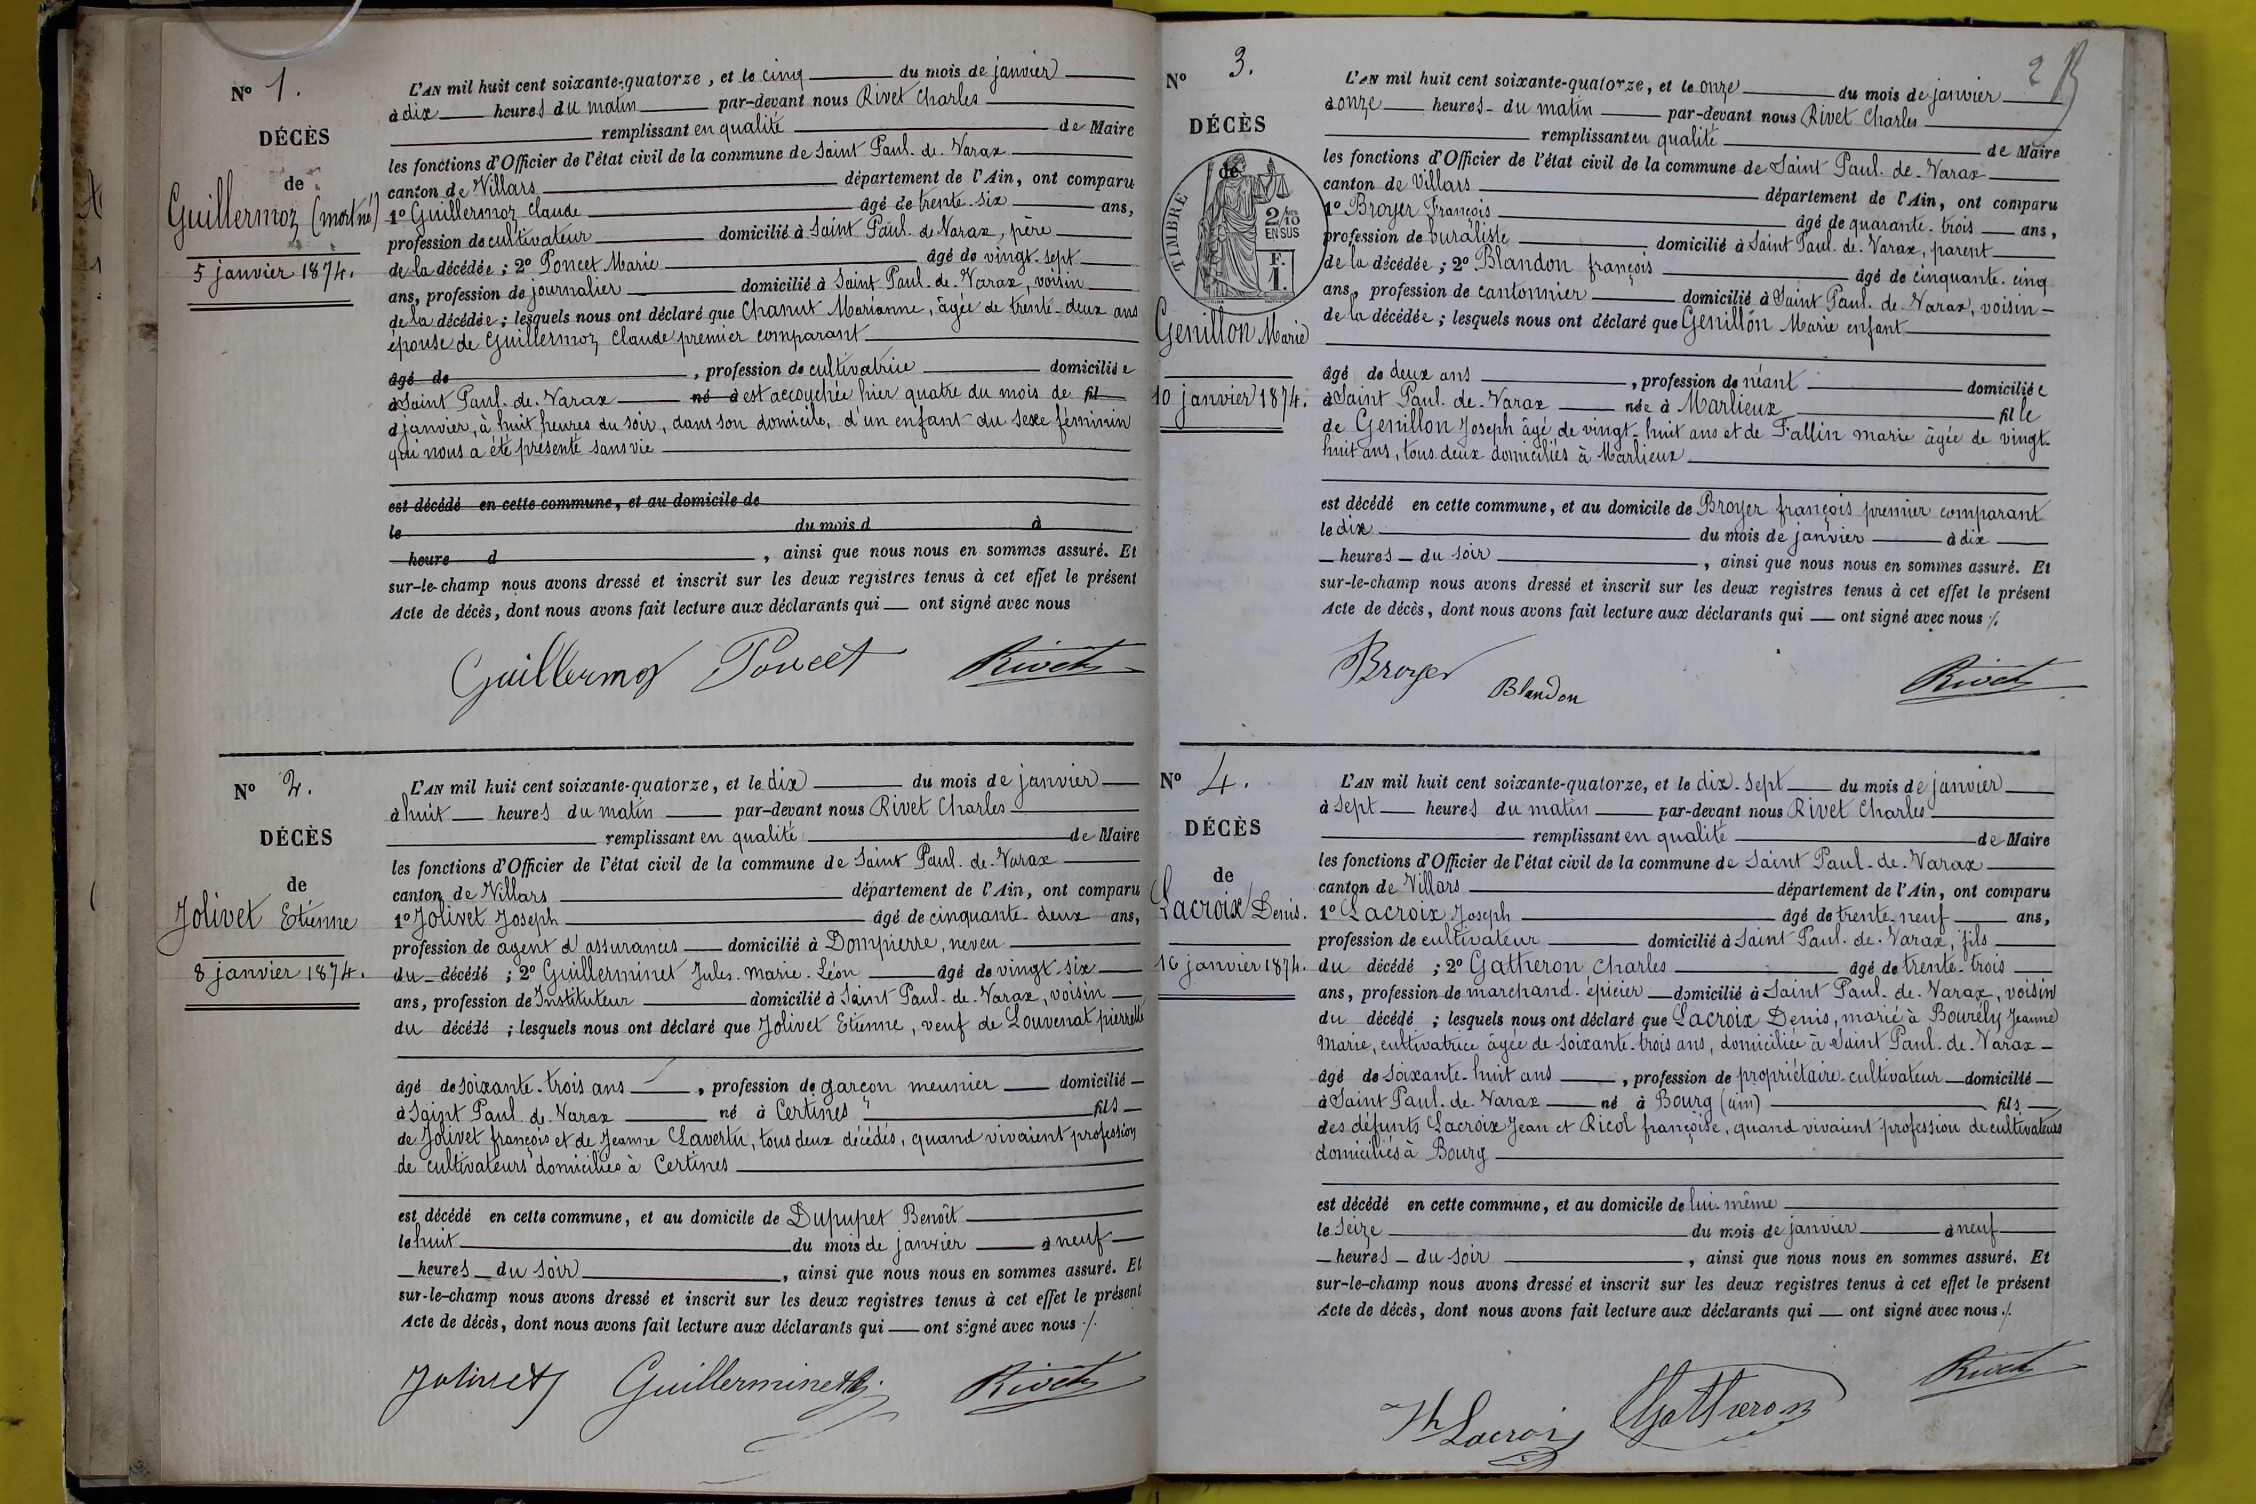 N° 1.
DÉCÈS
de
Guillermoz (mort né)
5 janvier 1874.
L'AN mil huit cent soixante-quatorze, et le cinq du mois de janvier
à dix heures du matin par-devant nous Rivet Charles
remplissant en qualité de Maire
les fonctions d'Officier de l'état civil de la commune de Saint Paul-de-Varax
canton de Villars département de l'Ain, ont comparu
1° Guillermoz Claude âgé de trente-six ans,
profession de cultivateur domicilié à Saint Paul-de-Varax, père
de la décédée ; 2° Poncet Marie âgé de vingt-sept
ans, profession de journalier domicilié à Saint-Paul-de-Varax, voisin
de la décédée ; lesquels nous ont déclaré que Chanut Marianne, âgée de trente-deux ans
épouse de Guillermoz Claude premier comparant
âgé de , profession de cultivatrice domiciliée
à Saint Paul-de-Varax né à est accouchée hier quatre du mois de fil
d janvier, à huit heures du soir, dans son domicile, d'un enfant du sexe féminin
qui nous a été présenté sans vie
est décédé en cette commune, et au domicile de
le du mois d à
heure d , ainsi que nous nous en sommes assuré. Et
sur-le-champ nous avons dressé et inscrit sur les deux registres tenus à cet effet le présent
Acte de décès, dont nous avons fait lecture aux déclarants qui ont signé avec nous
Guillermoz Poncet Rivet
N° 2.
DÉCÈS
de
Jolivet Etienne
8 janvier 1874.
L'AN mil huit cent soixante-quatorze, et le dix du mois de janvier
à huit heures du matin par-devant nous Rivet Charles
remplissant en qualité de Maire
les fonctions d'Officier de l'état civil de la commune de Saint Paul-de-Varax
canton de Villars département de l'Ain, ont comparu
1° Jolivet Joseph âgé de cinquante-deux ans,
profession de agent d'assurances domicilié à Dompierre, neveu
du décédé ; 2° Guillerminet Jules-Marie-Léon âgé de vingt-six
ans, profession de Instituteur domicilié à Saint Paul-de-Varax, voisin
du décédé ; lesquels nous ont déclaré que Jolivet Etienne, veuf de Louvenat pierrette
âgé de soixante-trois ans , profession de garçon meunier domicilié
à Saint Paul de Varax né à Certines fils
de Jolivet françois et de Jeanne Lavertu, tous deux décédés, quand vivaient profession
de cultivateurs domiciliés à Certines
est décédé en cette commune, et au domicile de Dupupet Benoît
le huit du mois de janvier à neuf
heures du soir , ainsi que nous nous en sommes assuré. Et
sur-le-champ nous avons dressé et inscrit sur les deux registres tenus à cet effet le présent
Acte de décès, dont nous avons fait lecture aux déclarants qui ont signé avec nous ./.
Jolivet Guillerminet Rivet
2
N° 3.
DÉCÈS
de
TIMBRE
2/10 EN SUS
F. 1.
Genillon Marie
10 janvier 1874.
L'AN mil huit cent soixante-quatorze, et le onze du mois de janvier
à onze heures du matin par-devant nous Rivet Charles
remplissant en qualité de Maire
les fonctions d'Officier de l'état civil de la commune de Saint Paul-de-Varax
canton de Villars département de l'Ain, ont comparu
1° Broyer François âgé de quarante-trois ans,
profession de buraliste domicilié à Saint Paul-de-Varax, parent
de la décédée ; 2° Blandon françois âgé de cinquante-cinq
ans, profession de cantonnier domicilié à Saint Paul-de-Varax, voisin
de la décédée ; lesquels nous ont déclaré que Genillon Marie enfant
âgé de deux ans , profession de néant domiciliée
à Saint Paul-de-Varax née à Marlieux fille
de Genillon Joseph âgé de vingt-huit ans et de Fallin marie âgée de vingt-
huit ans, tous deux domiciliés à Marlieux
est décédé en cette commune, et au domicile de Broyer françois premier comparant
le dix du mois de janvier à dix
heures du soir , ainsi que nous nous en sommes assuré. Et
sur-le-champ nous avons dressé et inscrit sur les deux registres tenus à cet effet le présent
Acte de décès, dont nous avons fait lecture aux déclarants qui ont signé avec nous ./.
Broyer Blandon Rivet
N° 4.
DÉCÈS
de
Lacroix Denis.
16 janvier 1874.
L'AN mil huit cent soixante-quatorze, et le dix-sept du mois de janvier
à sept heures du matin par-devant nous Rivet Charles
remplissant en qualité de Maire
les fonctions d'Officier de l'état civil de la commune de Saint Paul-de-Varax
canton de Villars département de l'Ain, ont comparu
1° Lacroix Joseph âgé de trente-neuf ans,
profession de cultivateur domicilié à Saint Paul-de-Varax, fils
du décédé ; 2° Gatheron Charles âgé de trente-trois
ans, profession de marchand-épicier domicilié à Saint Paul-de-Varax, voisin
du décédé ; lesquels nous ont déclaré que Lacroix Denis, marié à Bourély Jeanne
Marie, cultivatrice âgée de soixante-trois ans, domiciliée à Saint Paul-de-Varax
âgé de soixante-huit ans , profession de propriétaire-cultivateur domicilié
à Saint Paul-de-Varax né à Bourg (ain) fils
des défunts Lacroix Jean et Ricol françoise, quand vivaient profession de cultivateurs
domiciliés à Bourg
est décédé en cette commune, et au domicile de lui-même
le seize du mois de janvier à neuf
heures du soir , ainsi que nous nous en sommes assuré. Et
sur-le-champ nous avons dressé et inscrit sur les deux registres tenus à cet effet le présent
Acte de décès, dont nous avons fait lecture aux déclarants qui ont signé avec nous ./.
Lacroix Gatheron Rivet